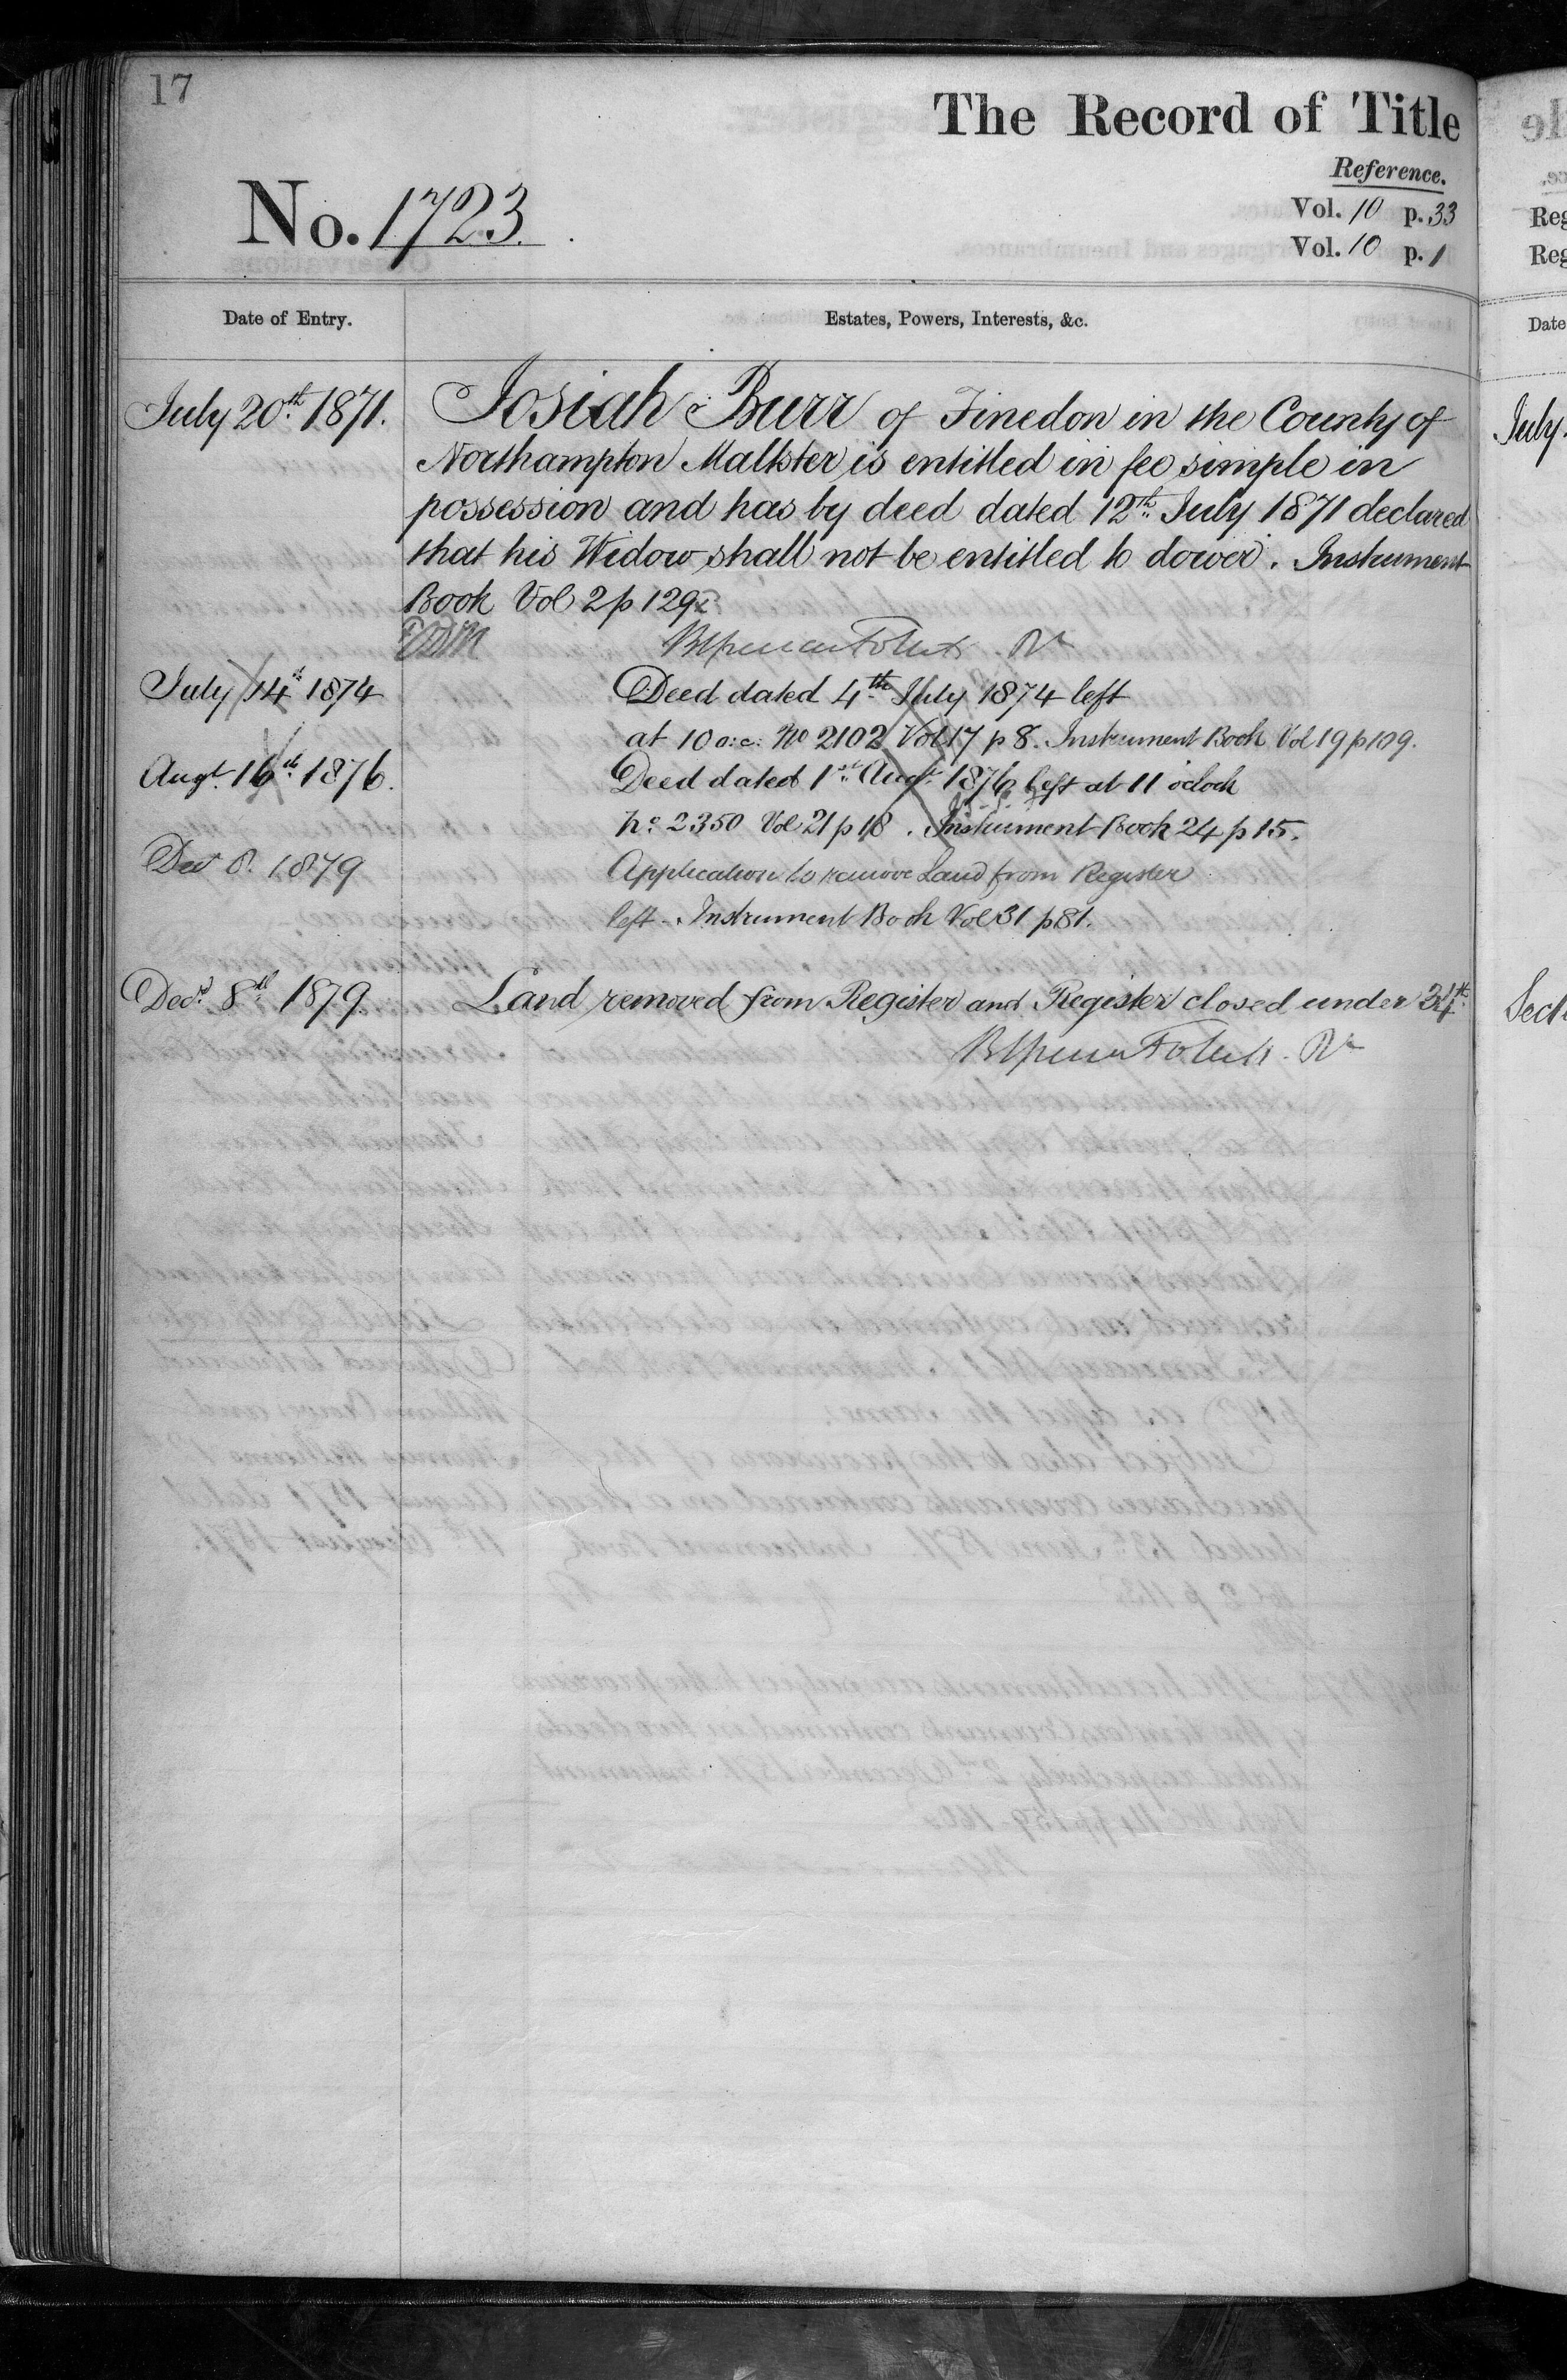 17
The Record of Title
Reference.
No. 1723.
Vol. 10 p. 33
Vol. 10 p. 1
Date of Entry.
Estates, Powers, Interests, &c.
July 20th 1871.
Josiah Burr of Finedon in the County of
Northampton Maltster is entitled in fee simple in
possession and has by deed dated 12th July 1871 declared
that his Widow shall not be entitled to dower. Instrument
Book Vol 2 p 129
July 14th 1874
Deed dated 4th July 1874 left
at 10 o.c. No 2102 Vol 17 p 8. Instrument Book Vol 19 p 109.
Augt. 16th 1876.
Deed dated 1st Augt. 1876 left at 11 o'clock
No 2350 Vol 21 p 18. Instrument Book 24 p 15.
Dec 8. 1879
Application to remove Land from Register
left. Instrument Book Vol 31 p 81.
Decr. 8th 1879.
Land removed from Register and Register closed under 34th
Reg
Reg
Date
July
Sect